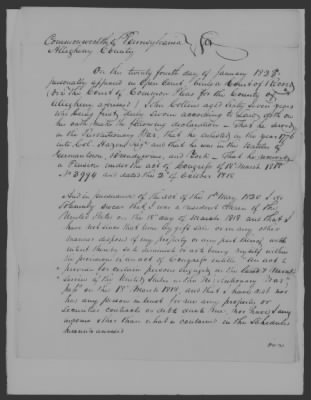 Commonwealth of Pennsylvania
Allegheny County
On the twenty fourth day of January 1828
personally appeared in Open Court (being a Court of Record
the Court of Common Pleas for the County of
Allegheny aforesaid) John Collins aged Sixty Seven years
who being first duly sworn according to law doth on
his oath make the following declaration - That he served
in the Revolutionary War, that he enlisted in the year 1776
into Col. Regt and that he was in the Battles of
Germantown, Brandywine, and - That he
a Pension under the act of Congress of 18th March 1818
No 3994 and dated the 2d of October 1818
And in pursuance of the act of the 1st May 1820 I do
Solemnly swear that I was a resident Citizen of the
United States on the 18th day of March 1818 and that I
have not since that time by gift sale or in any other
manner disposed of my property or any part thereof with
intent thereby so to diminish it as to bring myself within
the provisions of an act of Congress entitled "An act to
provide for certain persons engaged in the land & Naval
Service of the United States in the Revolutionary War"
passed on the 18th March 1818, and that I have not nor
has any person in trust for me any property or
Securities contracts or debts due to me, nor have I any
income other than what is contained in the Schedule
hereunto annexed